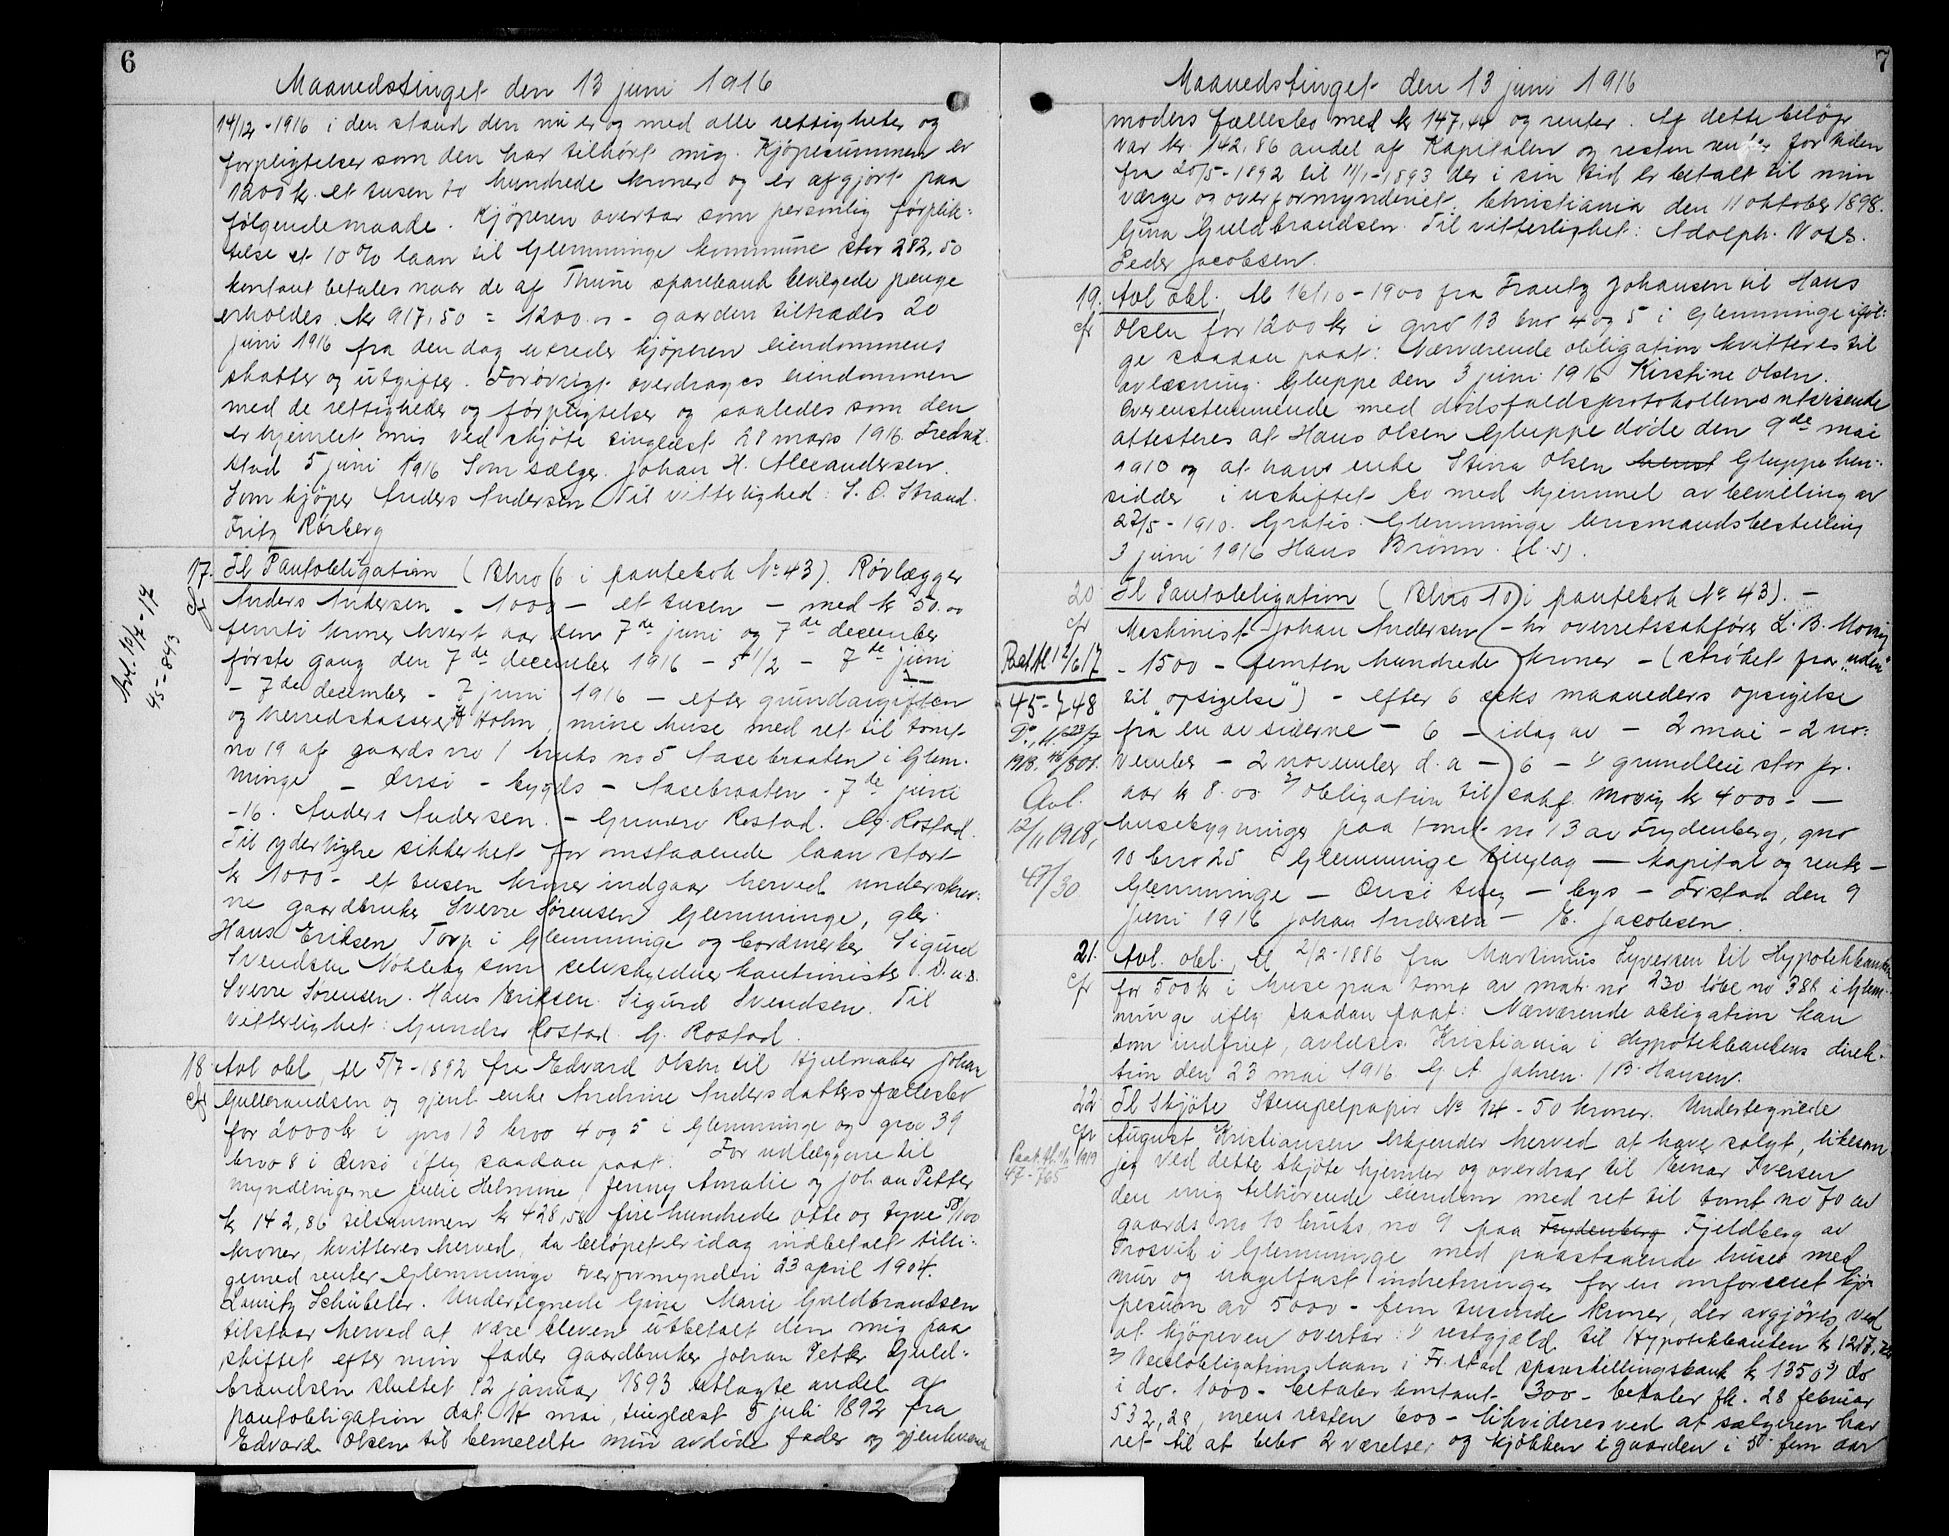 6
Maanedstinget den 13 juni 1916
14/12-1916 i den stand den nu er og med alle rettigheter og
forpligtelser som den har tilhört mig. Kjöpesummen er
1200 kr. et tusen to hundrede kroner og er afgjort paa
fölgende maade. Kjöperen overtar som personlig förplik-
telse et 10% laan til Glemminge kommune stor 282,50
kontant betales naar de af Thune sparebank bevilgede penge
erholdes kr 917,50 = 1200.00 - gaarden tiltrædes 20
juni 1916 fra den dag utreder kjöperen eiendommens
skatter og utgifter. Forövrigt overdrages eiendommen
med de rettigheder og förpligtelser og saaledes som den
er hjemlet mig ved skjöte tinglæst 28 mars 1916. Fredrik-
stad 5 juni 1916 Som sælger Johan H. Alexandersen.
Som kjöper Anders Andersen Til vitterlighed: S. O. Strand.
Fritz Rörberg
17. Tl Pantobligation (Blno 6 i pantebok No 43). Rövlægger
cfr Anders Andersen - 1000 - et tusen - med kr 50.00
Avl. 16/7-17
45-843
femti kroner hvert aar den 7de juni og 7de december
förste gang den 7de december 1916 - 5 1/2 - 7de juni
- 7de december - 7 juni 1916 - efter grundavgiften
og herredskasserer H Holm, mine huse med ret til tomt
no 19 af gaards no 1 bruks no 5 Nasebraaten i Glem-
minge - Onsö - bygds - Nasebraaten - 7de juni
-16. Anders Andersen. - Gundro Rostad. G. Rostad.
Til yderligere sikkerhet for omstaaende laan stort
kr 1000 - et tusen kroner indgaar herved underskrev-
ne gaardbruker Sverre Sörensen Glemminge, gler
Hans Eriksen Torp i Glemminge og bordmerker Sigurd
Svendsen Nobleby som selvskyldner kautionister. D.u.s.
Sverre Sörensen. Hans Eriksen. Sigurd Svendsen. Til
vitterlighet: Gundro Rostad. G. Rostad.
18. Avl obl, tl 5/7-1892 fra Edvard Olsen til Hjulmaker Johan
cfr Gulbrandsen og gjenl enke Andrine Andersdatters fællesbo
for 2000 kr i gno 13 bno 4 og 5 i Glemminge og gno 39
bno 8 i Onsö iflg saadan paat. For udlæggene til
myndlingerne Julie Helmine, Jenny Amalie og Johan Petter
kr 142,86 tilsammen kr 428,58 fire hundrede otte og tyve 58/100
kroner, kvitteres herved, da belöpet er idag indbetalt tilli-
gemed renter Glemminge overformynderi 23 april 1904.
Lauritz Schübeler. Undertegnede Gina Marie Guldbrandsen
tilstaar herved at være bleven utbetalt den mig paa
skiftet efter min fader gaardbruker Johan Petter Guld-
brandsen sluttet 12 januar 1893 utlagte andel af
pantobligation dat 14 mai, tinglæst 5 juli 1892 fra
Edvard Olsen til bemeldte min avdöde fader og gjenlevende
7
Maanedstinget den 13 juni 1916
moders fællesbo med kr 147,44 og renter. Af dette belöp
var kr. 142,86 andel af Kapitalen og resten renter for tiden
fra 20/5-1892 til 11/1-1893 der i sin tid er betalt til min
værge os overformynderiet. Christiania den 11 oktober 1898.
Gina Guldbrandsen. Til vitterlighet: Adolph Voss.
Peder Jacobsen.
19. Avl obl. tl 16/10-1900 fra Frantz Johansen til Hans
cfr Olsen for 1200 kr i gno 13 bno 4 og 5 i Glemminge iföl-
ge saadan paat: Nærværende obligation kvitteres til
avlæsning. Gluppe den 3 juni 1916 Kirstine Olsen.
Overenstemmende med dödsfaldsprotokollens utvisende
attesteres at Hans Olsen Gluppe döde den 9de mai
1910 og at hans enke Stina Olsen Gluppe hen-
sidder i uskiftet bo med hjemmel av bevilling av
27/5-1910. Gratis. Glemminge lensmandsbestilling
3 juni 1916 Hans Brönn. (l.s).
20 Tl Pantobligation (Blno 10 i pantebok No 43). -
cfr Maskinist Johan Andersen - hr overretssakförer L. B. Movig
Paat. tl 12/6 17
45-748
- 1500 - femten hundrede kroner - (ströket fra "uden
til opsigelse") - efter 6 seks maaneders opsigelse
fra en av siderne - 6 - idag av - 2 mai - 2 no-
vember - 2 november d.a - 6 - 1) grundleie stor pr.
aar kr 8.00 2) obligation til sakf. Movig kr 4000 - -
Avl.
12/11 1918,
47/30
husebygninger paa tomt no 13 av Frydenberg, gno
10 bno 25 Glemminge tinglag - kapital og rente -
Glemminge - Onsö tveg - bys - Frstad den 9
juni 1916 Johan Andersen - E. Jacobsen.
21. Avl. obl., tl 2/2-1886 fra Martinius Syversen til Hypotekbanken
cfr for 500 kr i huse paa tomt av matr. no 230 löbe no 388 i Glem-
minge iflg saadan paat: Nærværende obligation kan
som indfriet, avlæses. Kristiania i Hypotekbankens direk-
tion den 23 mai 1916 G A Jahren. / B. Hansen.
22 Tl Skjöte Stempelpapir No 14 - 50 kroner. Undertegnede
cfr August Kristiansen erkjender herved at have solgt, likesom
47-765
jeg ved dette skjöte hjemler og overdrar til Einar Iversen
den mig tilhörende eiendom med ret til tomt no 70 av
gaards no 10 bruks no 9 paa Frydenberg Fjeldberg av
Trosvik i Glemminge med paastaaende huse med
mur og nagelfast indretninger for en omforenet kjö-
pesum av 5000 - fem tusinde kroner, der avgjöres ved
at kjöperen overtar: 1) restgjæld til Hypotekbanken kr 1217,72
2) Vekselobligationslaan i Fr.stad sparestillingsbank kr 1350 3) do
i do. 1000 - betaler kontant 300 - betaler fk. 28 februar
532,28, mens resten 600 - likvideres ved at sælgeren har
ret til at bebo 2 værelser og kjökken i gaarden i 5 fem aar